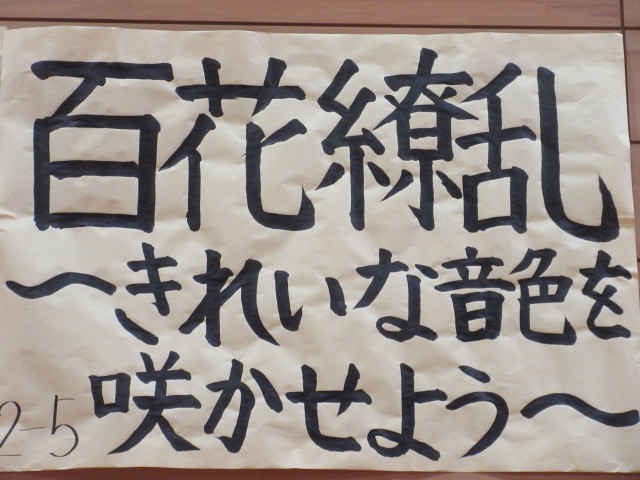 百花繚乱
〜きれいな音色を
咲かせよう〜
2-5